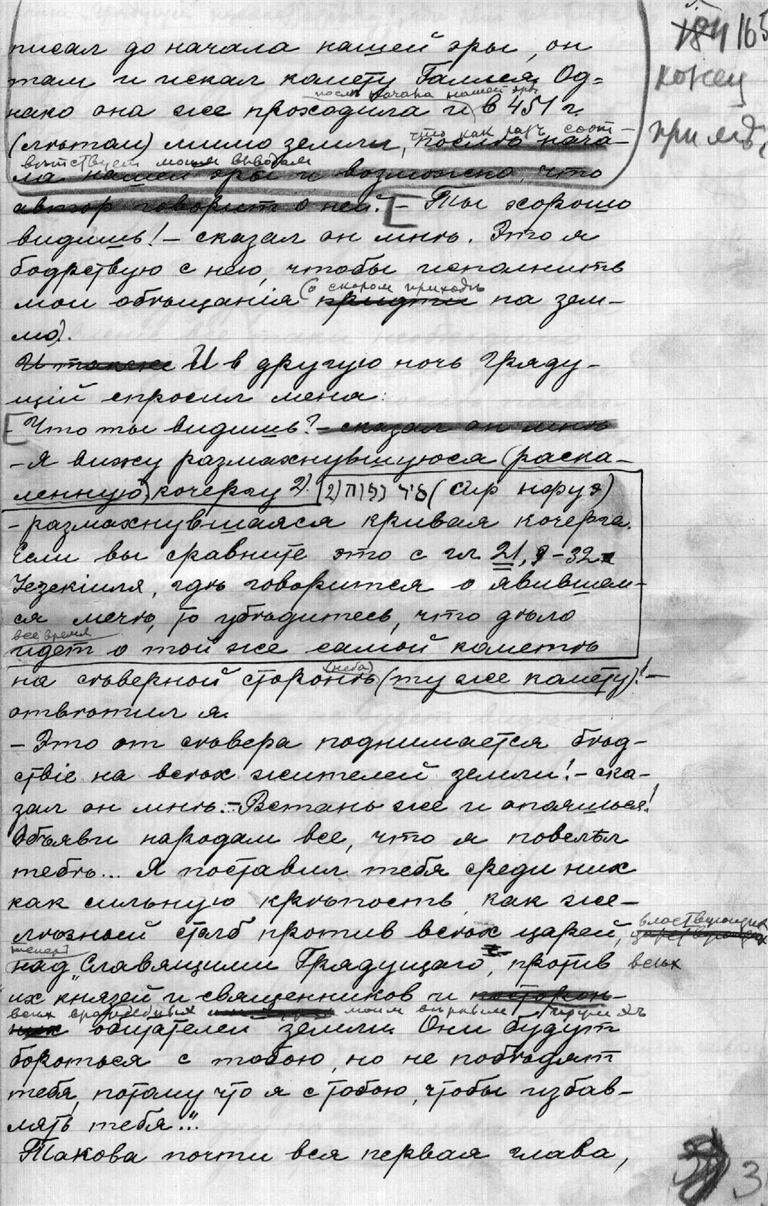 184 165
конец
прим 1),
писал до начала нашей эры, он
там и искал комету Галлея. Од=
после начала нашей эры
нако она же проходила и в 451 г.
что как раз соот-
(лѣтом) мимо земли, послѣ нача-
вѣтствует моим выводам
ла нашей эры и возможно, что
автор говорит о ней. [- Ты хорошо
видишь! – сказал он мнѣ. Это я
бодрствую с нею, чтобы исполнить
(о скором приходѣ
мои обѣщанія придти на зем-
лю).
И также И в другую ночь Гряду-
щій спросил меня:
[- Что ты видишь? – сказал он мнѣ
– Я вижу размахнувшуюся (раска-
ленную) кочергу 2). [2) סיר נפוח (сир нфуэ)
– размахнувшаяся кривая кочерга.
Если вы сравните это с гл 21, 9–32
Іезекіиля, гдѣ говорится о явившем-
ся мечѣ, то убѣдитесь, что дѣло
все время
идет о той же самой кометѣ
(неба)
на сѣверной сторонѣ (ту же комету)! –
отвѣтил я.
– Это от сѣвера поднимается бѣд-
ствіе на всѣх жителей земли! – ска-
зал он мнѣ. – Встань же и опояшься!
Объяви народам все, что я повелѣл
тебѣ... Я поставил тебя среди них
как сильную крѣпость, как же-
лѣзный столб против всѣх царей, властвующих
теперь
над „Славящими Грядущаго“, против всѣх
их князей и священников и посторон-
всѣх враждебных моим вѣрным
них обитателей земли. Они будут
бороться с тобою, но не побѣдят
тебя, потому что я с тобою, чтобы избав-
лять тебя..."
Такова почти вся первая глава,
3